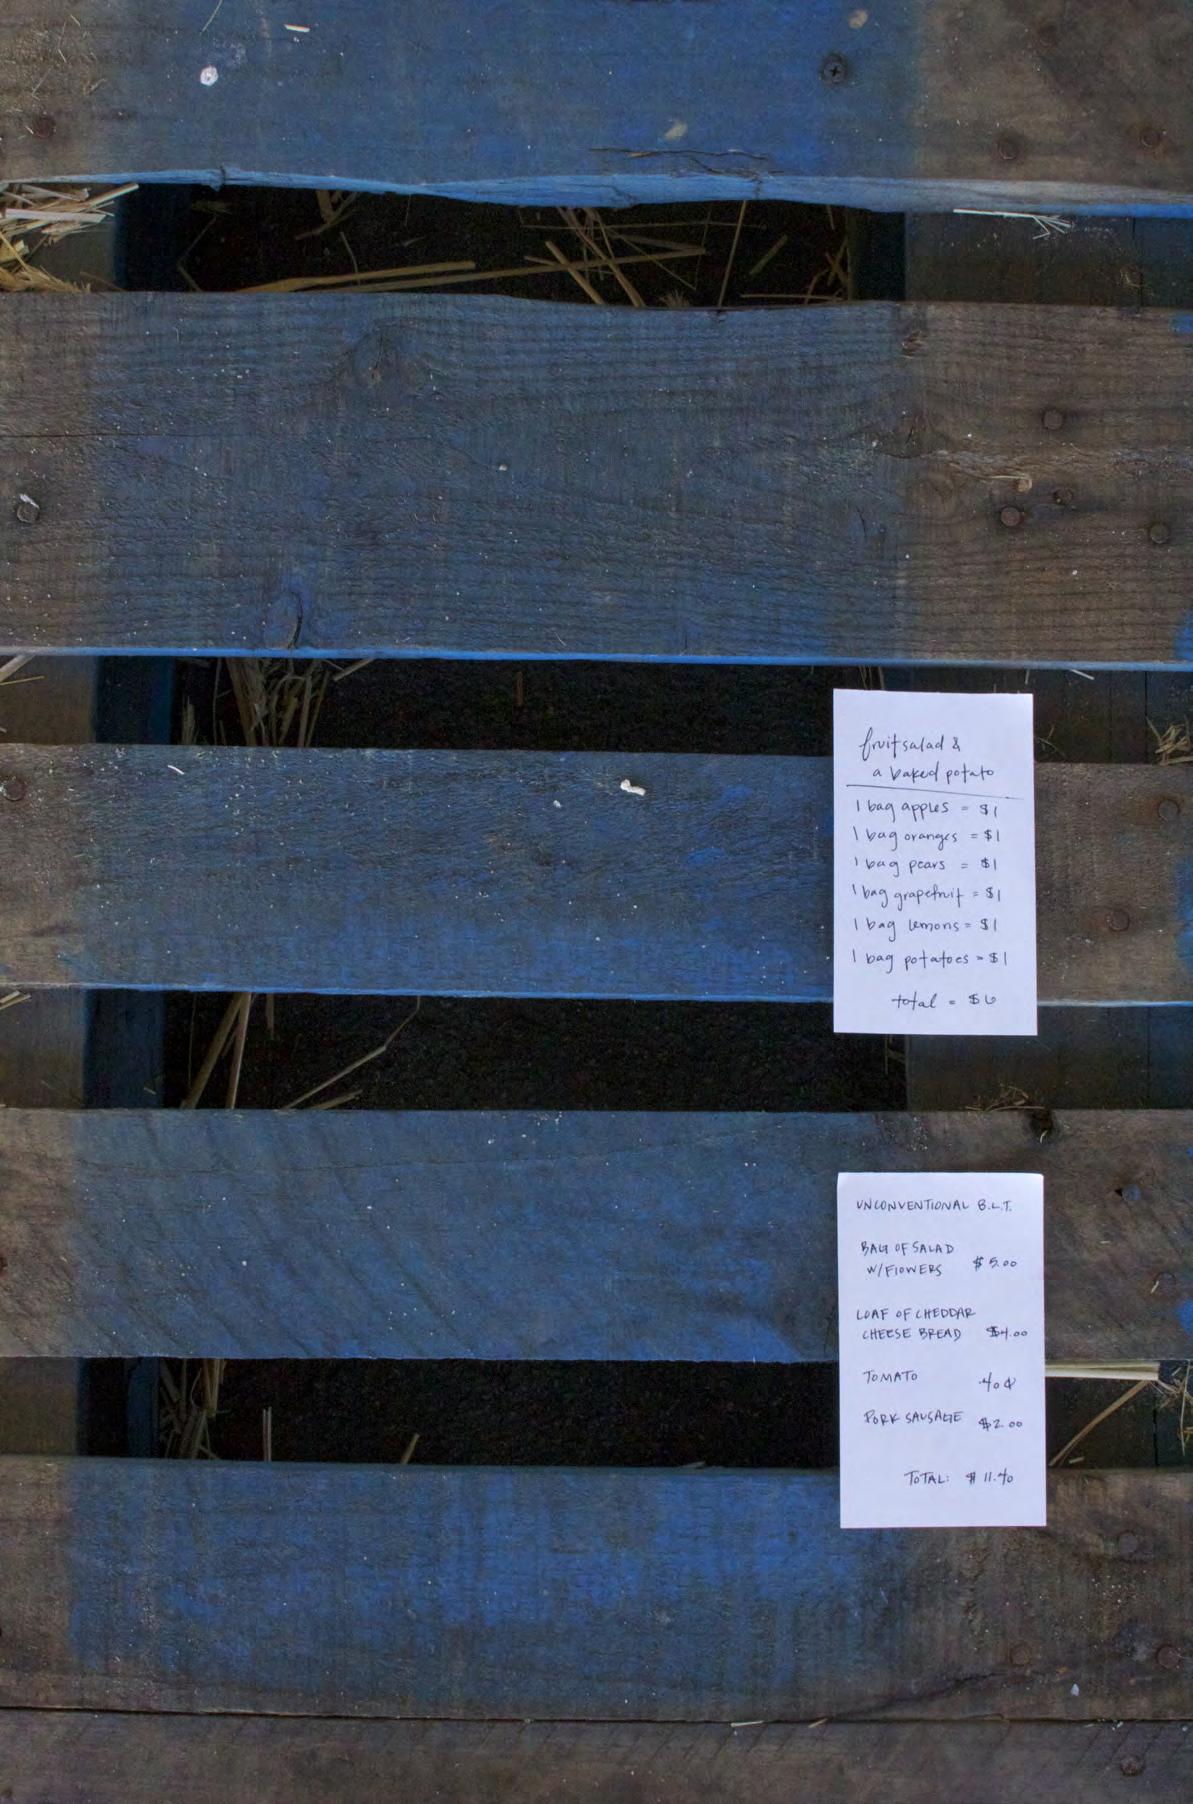 fruit salad &
a baked potato
1 bag apples = $1
1 bag oranges = $1
1 bag pears = $1
1 bag grapefruit = $1
1 bag lemons = $1
1 bag potatoes = $1
total = $6
UNCONVENTIONAL B.L.T.
BAG OF SALAD
W/FLOWERS $5.00
LOAF OF CHEDDAR
CHEESE BREAD $4.00
TOMATO .40¢
PORK SAUSAGE $2.00
TOTAL: $11.40